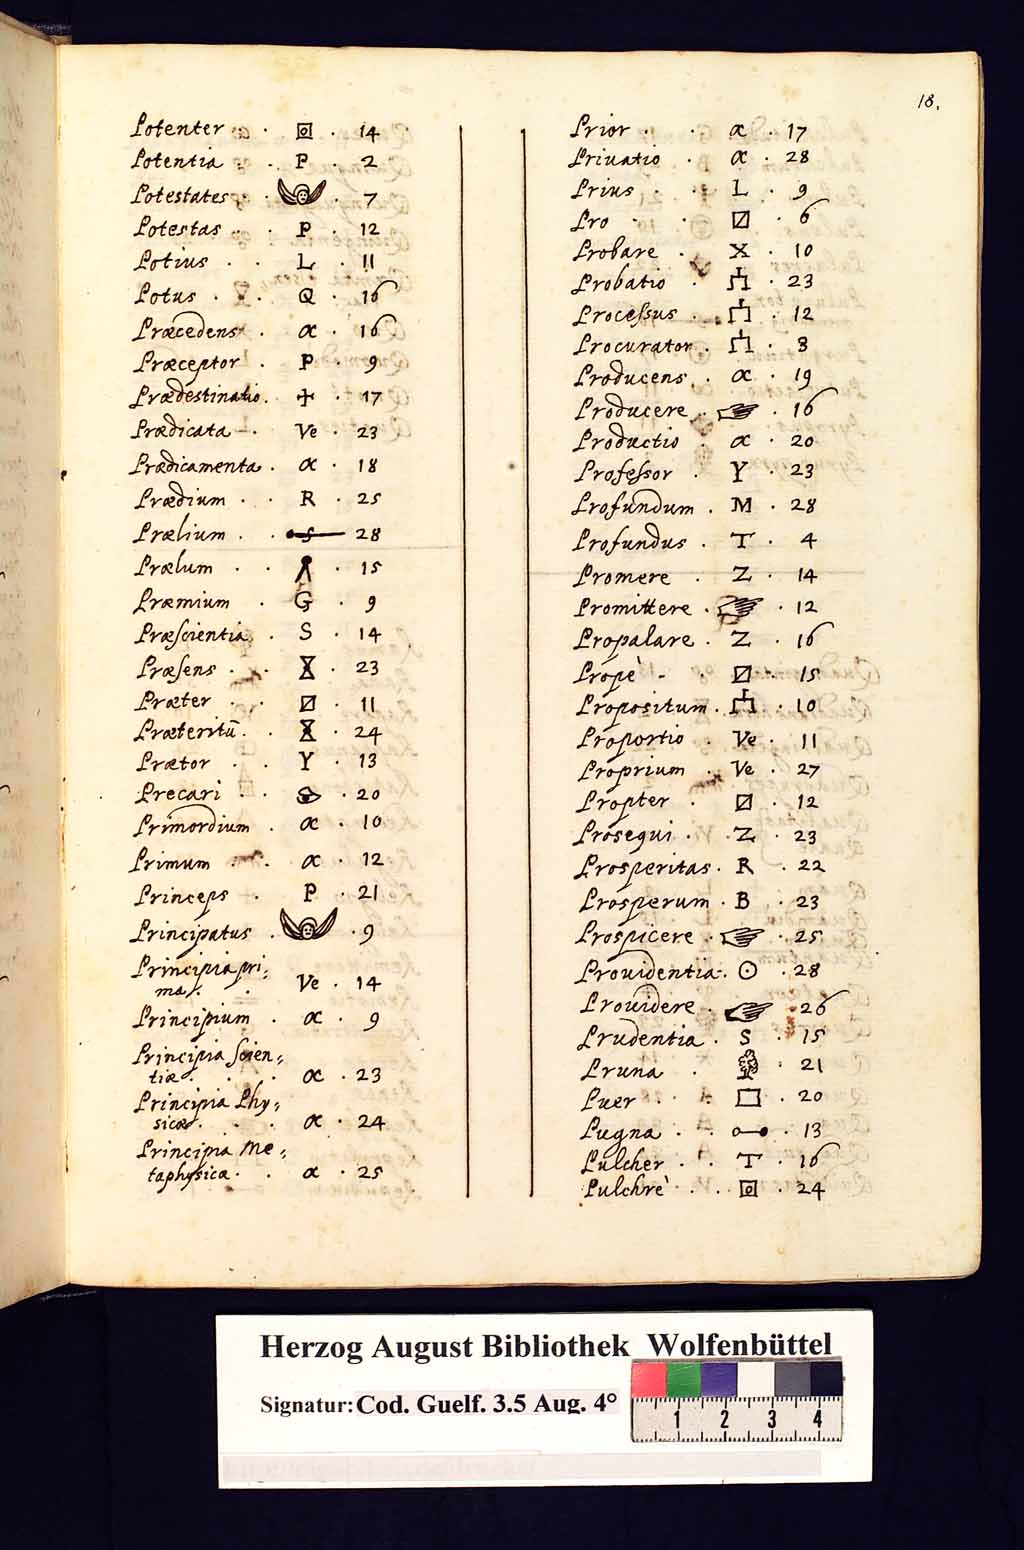 18.
Potenter · 14
Potentia · P · 2
Potestates · 7
Potestas · P · 12
Potius · L · 11
Potus · Q · 16
Præcedens · α · 16
Præceptor · P · 9
Prædestinatio · + · 17
Prædicata · Ve · 23
Prædicamenta · α · 18
Prædium · R · 25
Prælium · 28
Prælum · 15
Præmium · G · 9
Præscientia · S · 14
Præsens · 23
Præter · 11
Præteritū · 24
Prætor · Y · 13
Precari · 20
Primordium · α · 10
Primum · α · 12
Princeps · P · 21
Principatus · 9
Principia pri:
ma · Ve · 14
Principium · α · 9
Principia Scien:
tiæ · α · 23
Principia Phy:
sicæ · α · 24
Principia Me:
taphysica · α · 25
Prior · α · 17
Priuatio · α · 28
Prius · L · 9
Pro · 6
Probare · X · 10
Probatio · 23
Processus · 12
Procurator · 8
Producens · α · 19
Producere · 16
Productio · α · 20
Professor · Y · 23
Profundum · M · 28
Profundus · T · 4
Promere · Z · 14
Promittere · 12
Propalare · Z · 16
Propè · 15
Propositum · 10
Proportio · Ve · 11
Proprium · Ve · 27
Propter · 12
Prosequi · Z · 23
Prosperitas · R · 22
Prosperum · B · 23
Prospicere · 25
Prouidentia · ⊙ · 28
Prouidere · 26
Prudentia · S · 15
Pruna · 21
Puer · 20
Pugna · 13
Pulcher · T · 16
Pulchrè · 24
Herzog August Bibliothek Wolfenbüttel
Signatur: Cod. Guelf. 3.5 Aug. 4°
1 2 3 4